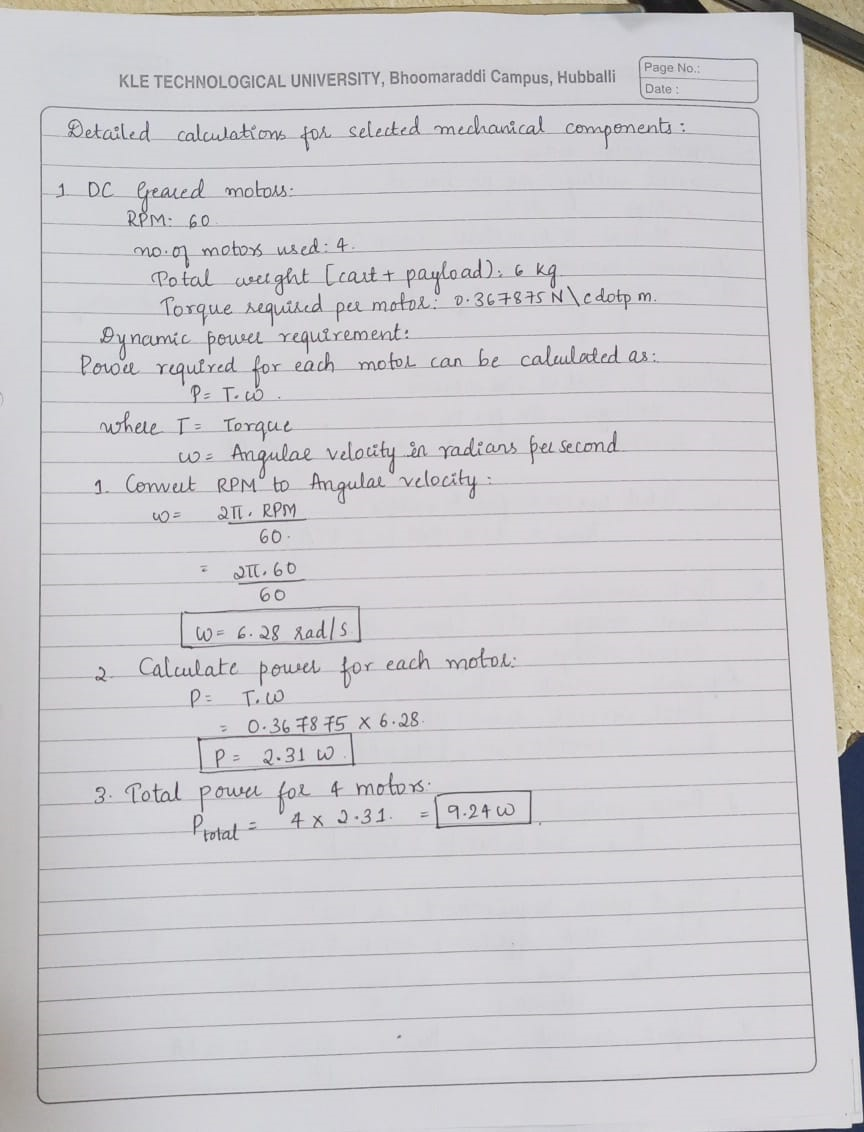 KLE TECHNOLOGICAL UNIVERSITY, Bhoomaraddi Campus, Hubballi
Page No.:
Date :
Detailed calculations for selected mechanical components:
1 DC Geared motors.
RPM: 60
no. of motors used: 4.
Total weight [cart + payload): 6 kg
Torque required per motor: 0.367875 N\cdotp m.
Dynamic power requirement:
Power required for each motor can be calculated as:
P= T.ω.
where T= Torque
ω= Angular velocity in radians per second
1. Convert RPM to Angular velocity:
ω= 2π. RPM
60.
= 2π.60
60
ω= 6.28 rad/s
2. Calculate power for each motor:
P= T.ω
= 0.367875 × 6.28.
P= 2.31 W.
3. Total power for 4 motors:
Ptotal = 4 × 2.31. = 9.24 W.